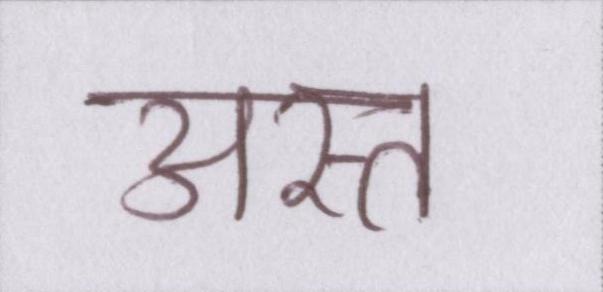 अस्त